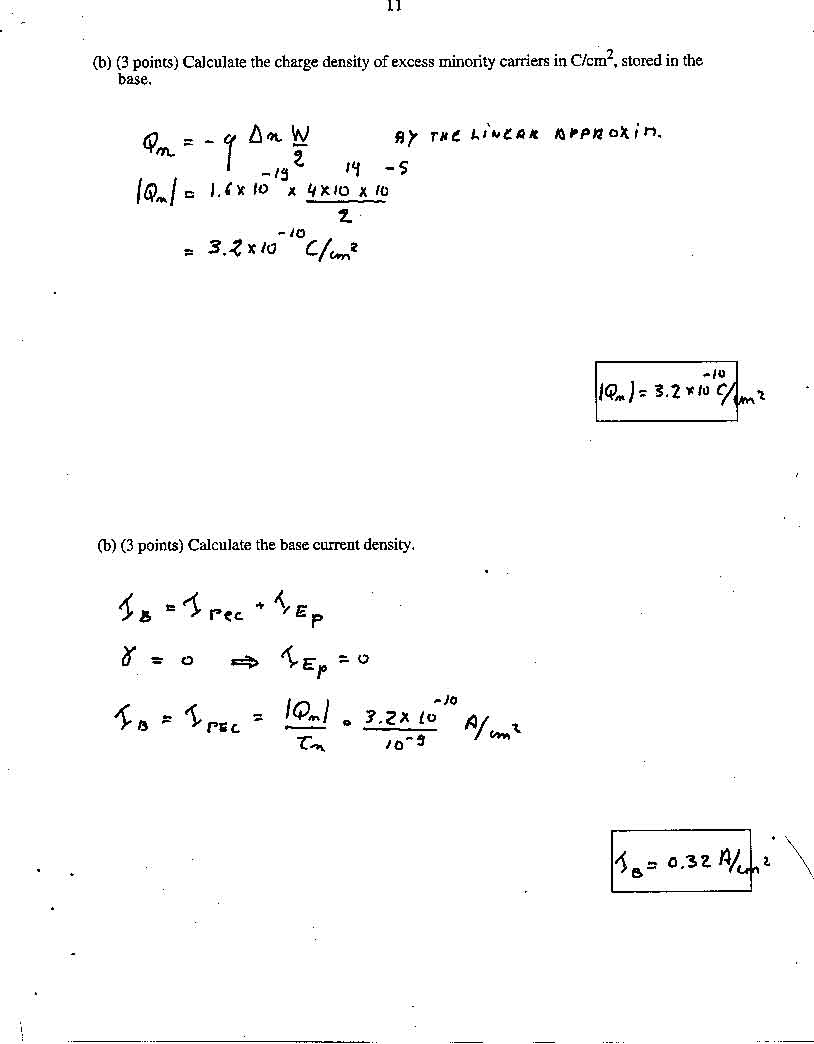 11
(b) (3 points) Calculate the charge density of excess minority carriers in C/cm², stored in the
base.
Qₙ = - q Δn W/2 BY THE LINEAR APPROXIM.
|Qₙ| = 1.6 x 10⁻¹⁹ x (4x10¹⁴ x 10⁻⁵)/2
= 3.2 x 10⁻¹⁰ C/cm²
|Qₙ| = 3.2 x 10⁻¹⁰ C/cm²
(b) (3 points) Calculate the base current density.
J_B = J_rec + J_Ep
γ = 0 ⇒ J_Ep = 0
J_B = J_rec = |Qₙ|/τₙ = (3.2 x 10⁻¹⁰)/10⁻⁹ A/cm²
J_B = 0.32 A/cm²